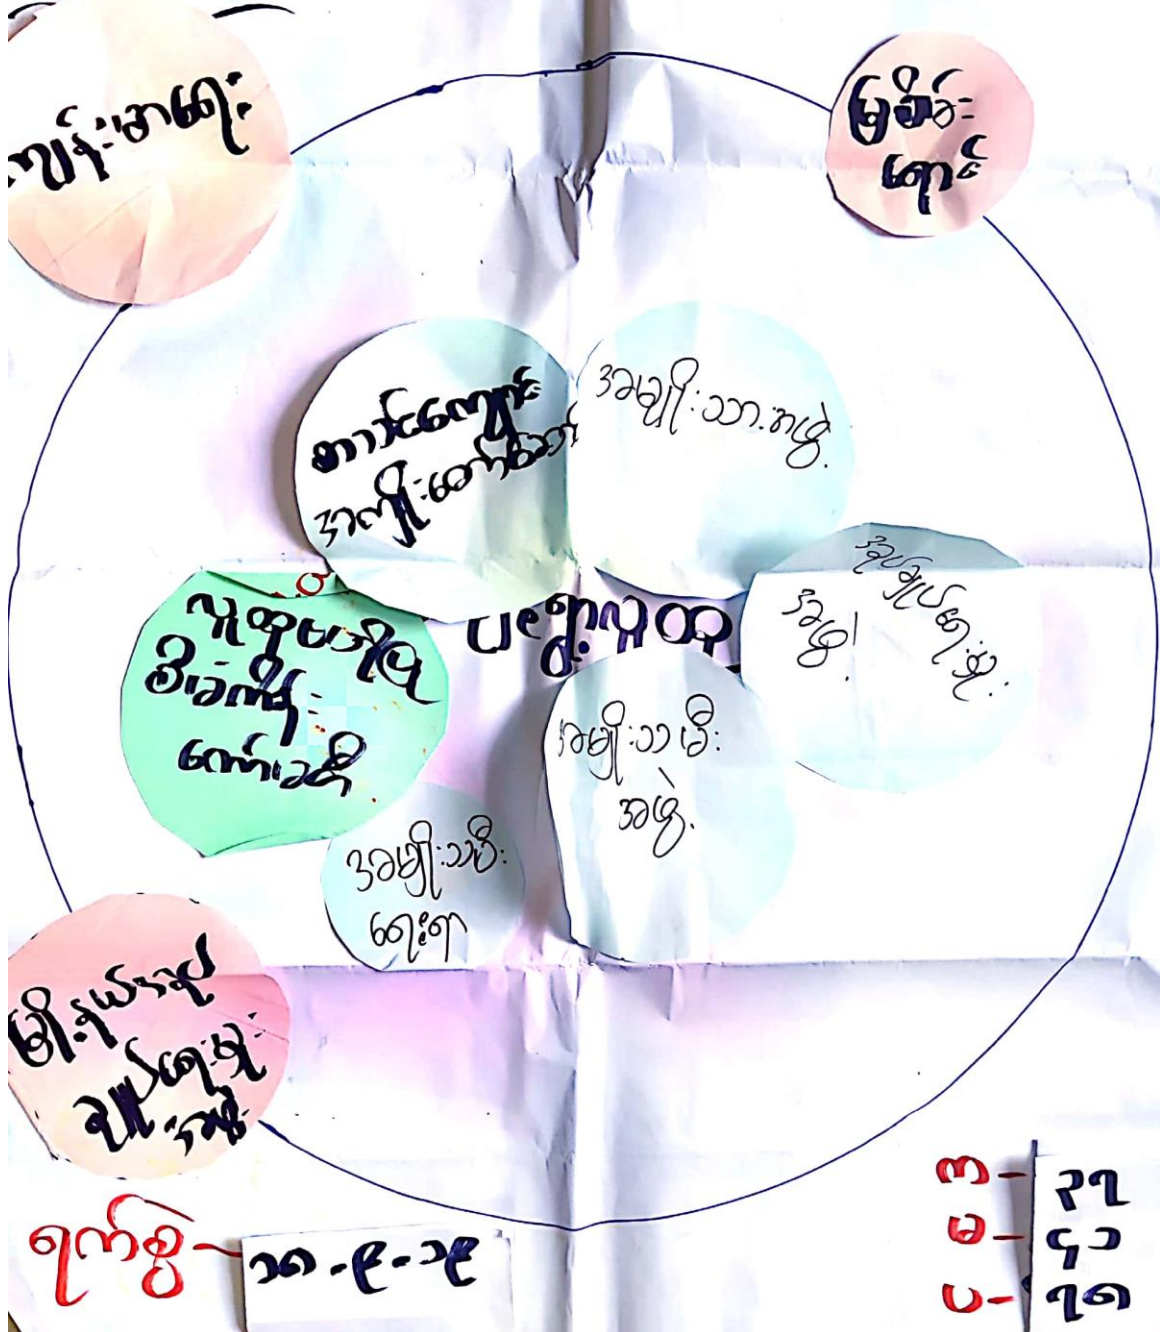 ကျန်းမာရေး
မြစိမ်း
ရောင်
စာသင်ကျောင်း
အကျိုးတော်ဆောင်
အမျိုးသားအဖွဲ့
အုပ်ချုပ်ရေးမှူး
အဖွဲ့
လူထုဗဟိုပြု
စီမံကိန်း
ကော်မတီ
ရွာလူထု
အမျိုးသမီး
အဖွဲ့
အမျိုးသမီး
ရေးရာ
မြို့နယ်အုပ်
ချုပ်ရေးမှူး
အဖွဲ့
ရက်စွဲ
၁၈-၉-၁၉
က - ၃၇
မ - ၄၁
ပ - ၇၈